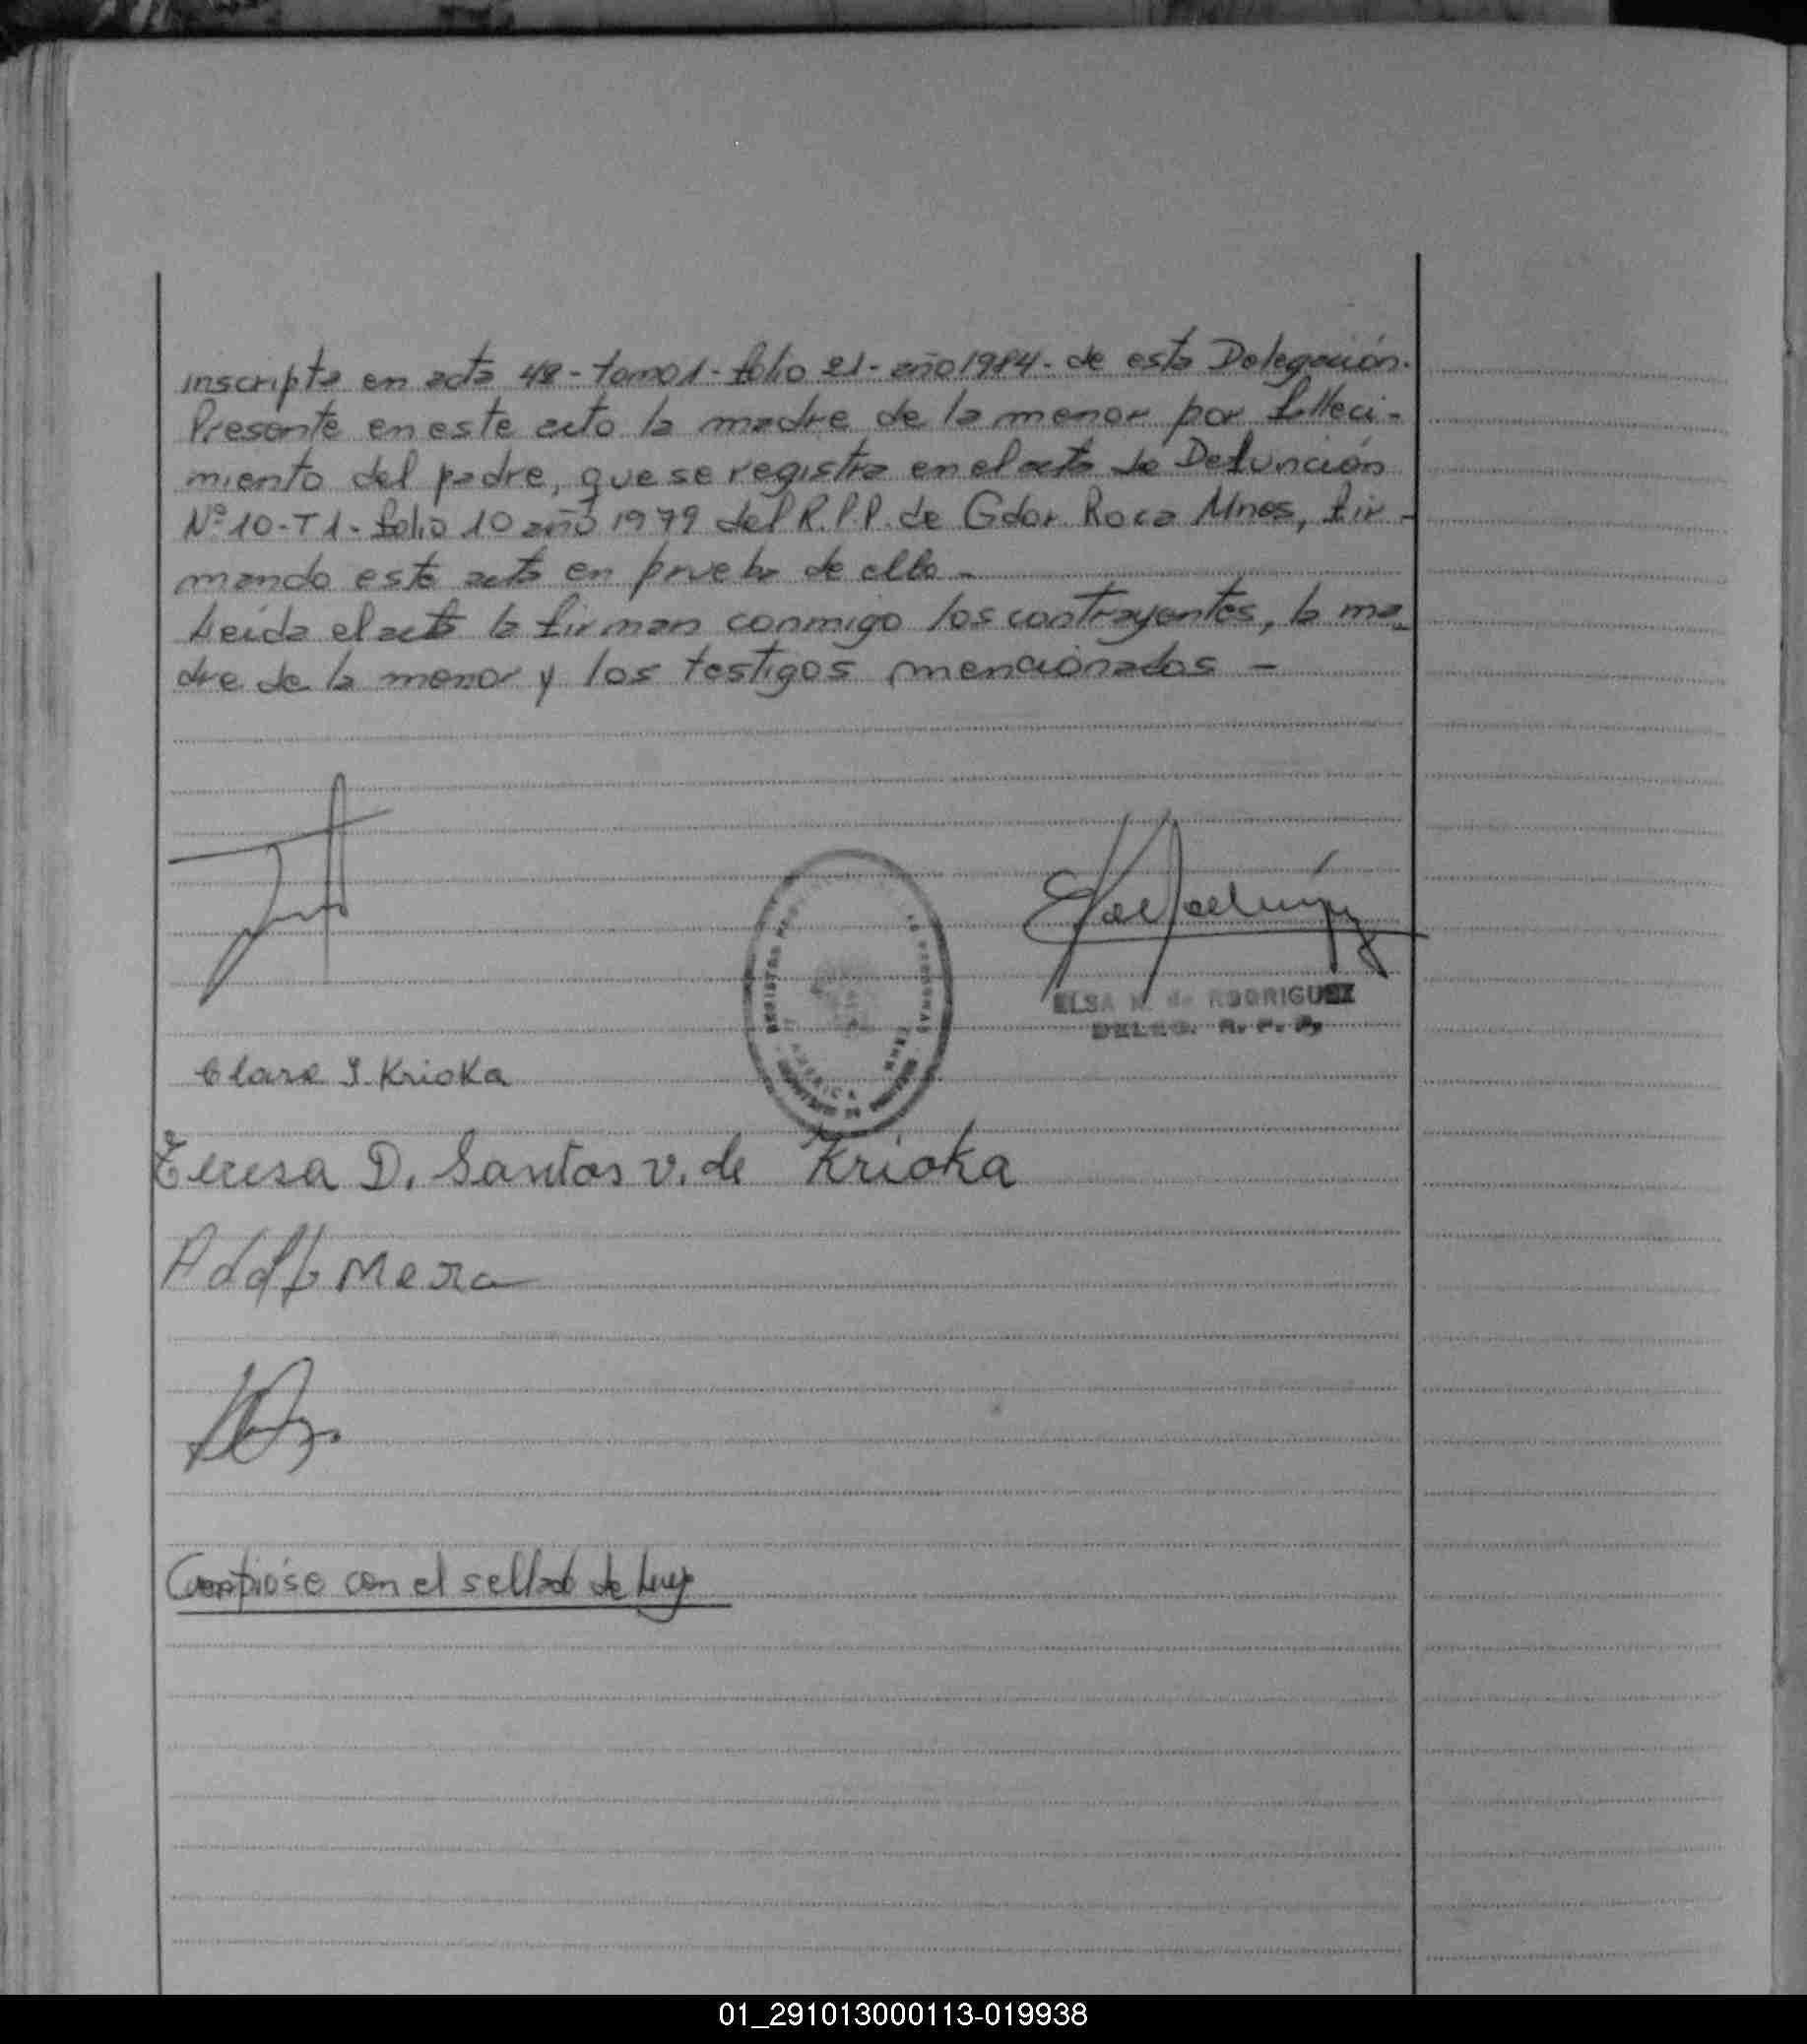 inscripta en acta 48 - tomo 1 - folio 21 - año 1984 - de esta Delegación.
Presente en este acto la madre de la menor por falleci-
miento del padre, que se registra en el acta de Defunción
Nº 10 - T 1 - folio 10 año 1979 del R.P.P. de Gdor Roca Mnes, fir-
mando este acta en prueba de ello -
Leída el acta la firman conmigo los contrayentes, la ma-
dre de la menor y los testigos mencionados -
ELSA N. de RODRIGUEZ
DELEG. R. P. P.
Clara I. Krioka
Teresa D. Santos v. de Krioka
Adolfo Mera
con el sellado de Ley
01_291013000113-019938